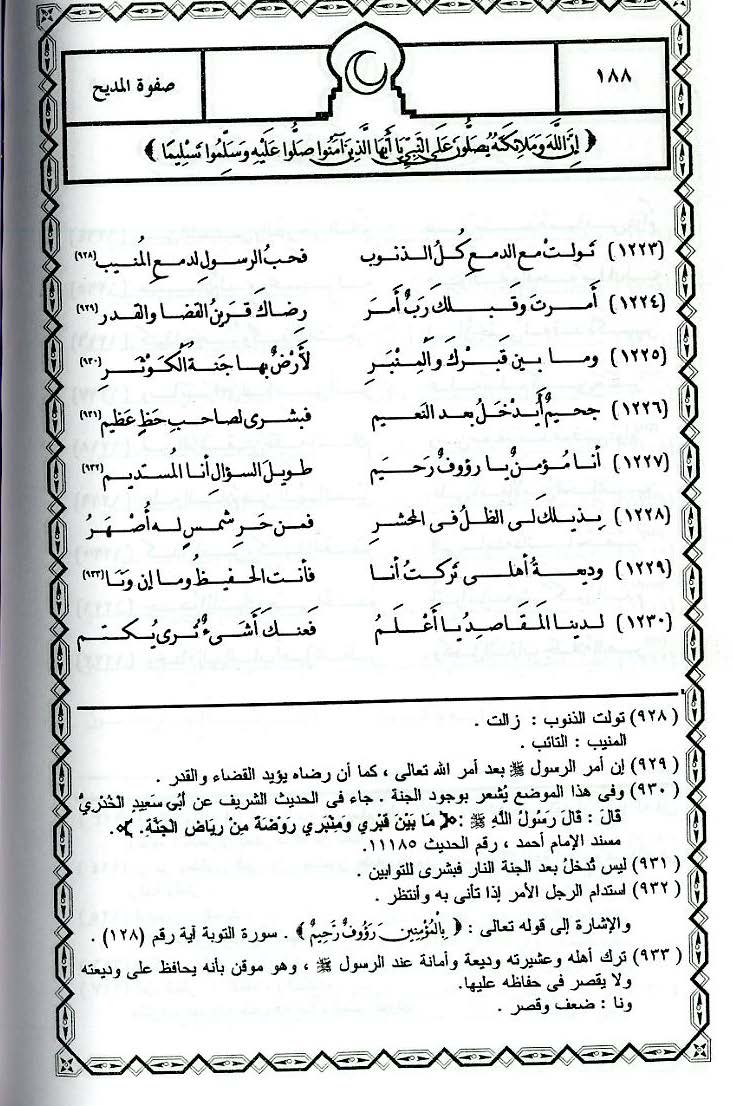 ١٨٨
صفوة المديح
﴿ إِنَّ اللَّهَ وَمَلَائِكَتَهُ يُصَلُّونَ عَلَى النَّبِيِّ يَا أَيُّهَا الَّذِينَ آمَنُوا صَلُّوا عَلَيْهِ وَسَلِّمُوا تَسْلِيمًا ﴾
(١٢٢٣) تولتْ مع الدمعِ كُلُ الذنوب فحبُ الرسولِ لدمعِ المُنيب (٩٢٨)
(١٢٢٤) أَمرتَ وقبلكَ ربٌ أَمَرَ رِضاكَ قَرينُ القضا والقدر (٩٢٩)
(١٢٢٥) وما بين قَبْرِكَ والمِنْبَرِ لَأَرْضٌ بها جَنةُ الكَوْثَرِ (٩٣٠)
(١٢٢٦) جحيمٌ أَيدْخَلُ بعد النعيم فبشرى لصاحبِ حَظٍ عَظِيم (٩٣١)
(١٢٢٧) أنا مُؤمنٌ يا رؤوفٌ رَحيم طويلَ السؤالِ أنا المُستديم (٩٣٢)
(١٢٢٨) بِذيلكَ لى الظلُ فى المحشرِ فمن حَرِ شمسٍ له أُصْهَرُ
(١٢٢٩) وديعةُ أهلى تركتُ أنا فأنت الحفيظُ وما إن ونَا (٩٣٣)
(١٢٣٠) لدينا المَقَاصدِ يا أَعْلَمُ فَعنكَ أَشَىءٌ تُرى يُكتم
(٩٢٨) تولت الذنوب : زالت .
المنيب : التائب .
(٩٢٩) إن أمر الرسول ﷺ بعد أمر الله تعالى ، كما أن رضاه يؤيد القضاء والقدر .
(٩٣٠) وفى هذا الموضع يُشعر بوجود الجنة . جاء فى الحديث الشريف عن أَبِي سَعِيدٍ الْخُدْرِيِّ
قَالَ : قَالَ رَسُولُ اللَّهِ ﷺ :﴿ مَا بَيْنَ قَبْرِي وَمِنْبَرِي رَوْضَةٌ مِنْ رِيَاضِ الْجَنَّةِ. ﴾.
مسند الإمام أحمد ، رقم الحديث ١١١٨٥.
(٩٣١) ليس تُدخلُ بعد الجنة النار فبشرى للتوابين .
(٩٣٢) استدام الرجل الأمر إذا تأنى به وأنتظر .
والإشارة إلى قوله تعالى : ﴿ بِالْمُؤْمِنِينَ رَؤُوفٌ رَحِيمٌ ﴾ . سورة التوبة آية رقم (١٢٨) .
(٩٣٣) ترك أهله وعشيرته وديعة وأمانة عند الرسول ﷺ ، وهو موقن بأنه يحافظ على وديعته
ولا يقصر فى حفاظه عليها.
ونا : ضعف وقصر .